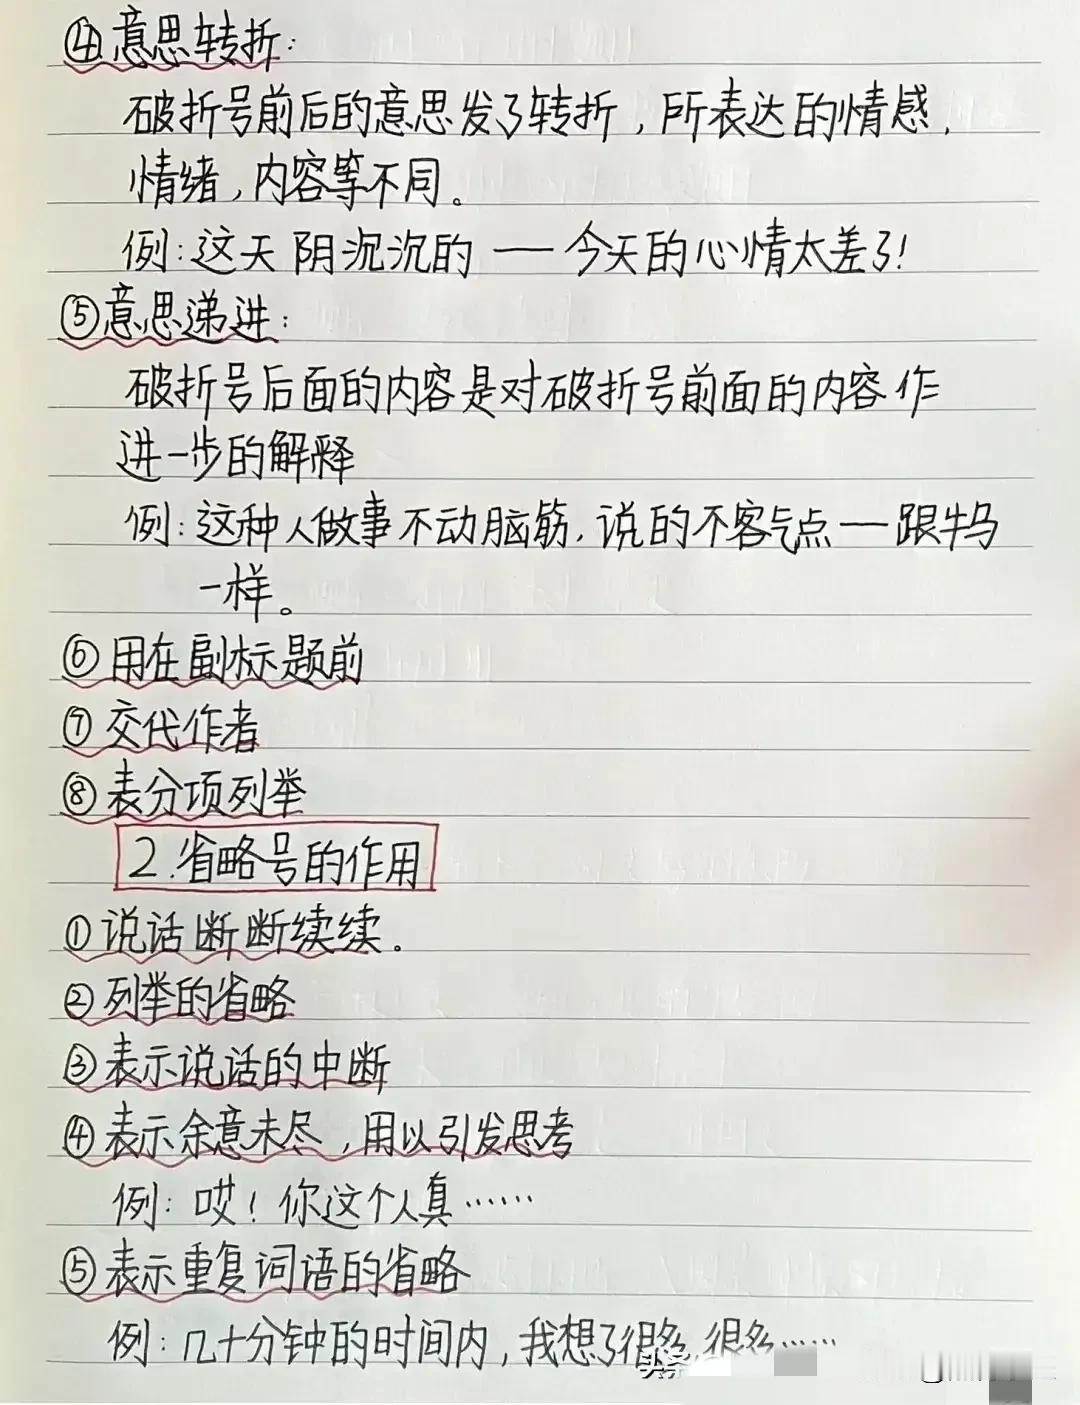 ④意思转折:
破折号前后的意思发了转折,所表达的情感,
情绪,内容等不同。
例:这天阴沉沉的——今天的心情太差了!
⑤意思递进:
破折号后面的内容是对破折号前面的内容作
进一步的解释
例:这种人做事不动脑筋,说的不客气点——跟牛马
一样。
⑥用在副标题前
⑦交代作者
⑧表分项列举
2.省略号的作用
①说话断断续续.
②列举的省略
③表示说话的中断
④表示余意未尽,用以引发思考
例:哎!你这个人真……
⑤表示重复词语的省略
例:几十分钟的时间内,我想了很多,很多……
头条